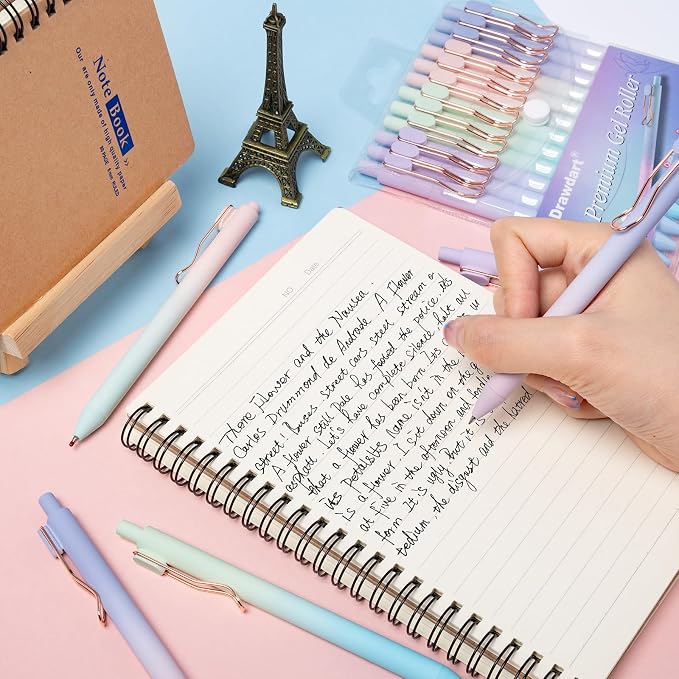 Note Book >>
Our are only made of high quality paper
Drawdart®
Premium Gel Roller
NO
Date
There Flower and the Nausea.
Carlos Drummond de Andrade A Flower
street! Buses, street cars steel stream a
A flower still Pale has fooled the police
asphalt Let's have complete silence halt all
that a flower has been born
its Petals its name isn't in the
is a flower I sit down on the g
at five in the afternoon and
form It is ugly But it is
tedium, the disgust and the